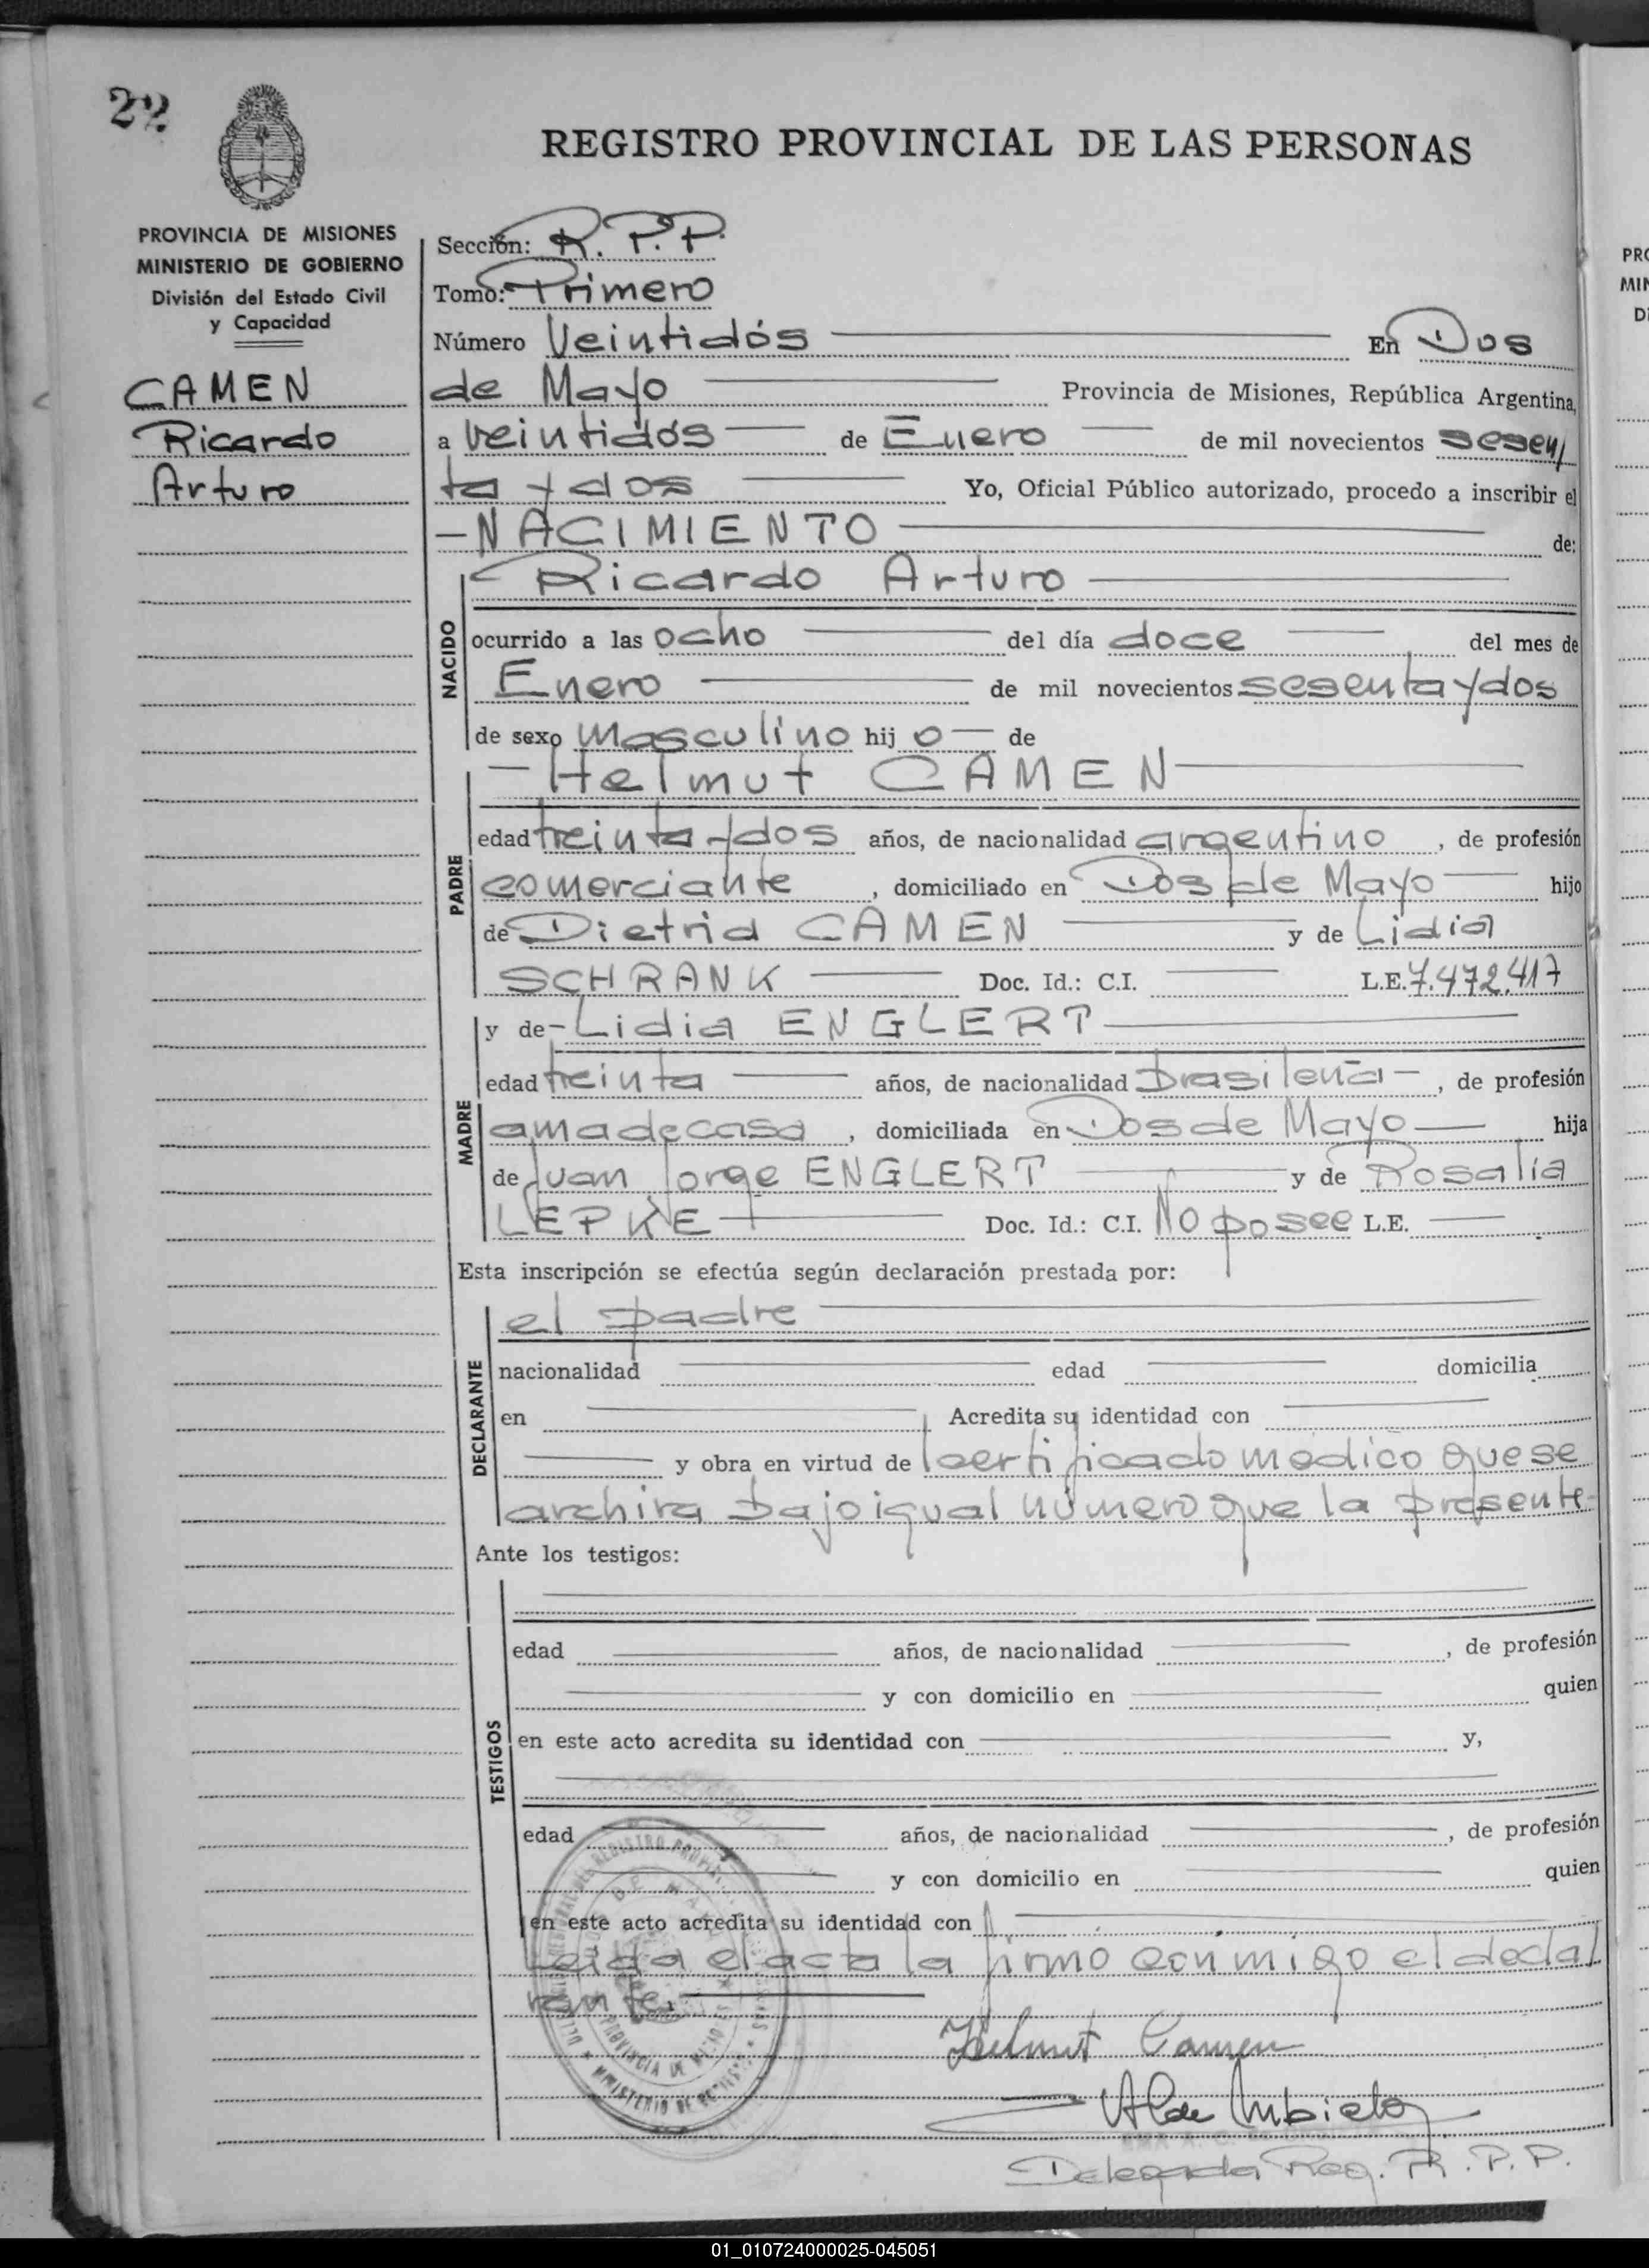 22
REGISTRO PROVINCIAL DE LAS PERSONAS
PROVINCIA DE MISIONES
MINISTERIO DE GOBIERNO
División del Estado Civil
y Capacidad
CAMEN
Ricardo
Arturo
Sección: R. P. P.
Tomo: Primero
Número Veintidós En Dos
de Mayo Provincia de Misiones, República Argentina,
a veintidós de Enero de mil novecientos sesen
ta y dos Yo, Oficial Público autorizado, procedo a inscribir el
- NACIMIENTO de:
NACIDO
Ricardo Arturo
ocurrido a las ocho del día doce del mes de
Enero de mil novecientos sesenta y dos
de sexo masculino hij o de
PADRE
- Helmut CAMEN
edad treinta y dos años, de nacionalidad argentino, de profesión
comerciante, domiciliado en Dos de Mayo hijo
de Dietrid CAMEN y de Lidia
SCHRANK Doc. Id.: C.I. L.E. 7.472.417
MADRE
y de - Lidia ENGLERT
edad treinta años, de nacionalidad brasileña -, de profesión
ama de casa, domiciliada en Dos de Mayo hija
de Juan Jorge ENGLERT y de Rosalía
LEPKE Doc. Id.: C.I. No posee L.E.
Esta inscripción se efectúa según declaración prestada por:
DECLARANTE
el padre
nacionalidad edad domicilia
en Acredita su identidad con
y obra en virtud de certificado médico que se
archiva bajo igual número que la presente-
Ante los testigos:
TESTIGOS
edad años, de nacionalidad , de profesión
y con domicilio en quien
en este acto acredita su identidad con y,
edad años, de nacionalidad , de profesión
y con domicilio en quien
en este acto acredita su identidad con
Leída el acta la firmó conmigo el decla
rante.
Helmut Camen
Delegada Reg. R. P. P.
PROVINCIA DE MISIONES
MINISTERIO DE GOBIERNO
PRO
MIN
Di
01_010724000025-045051